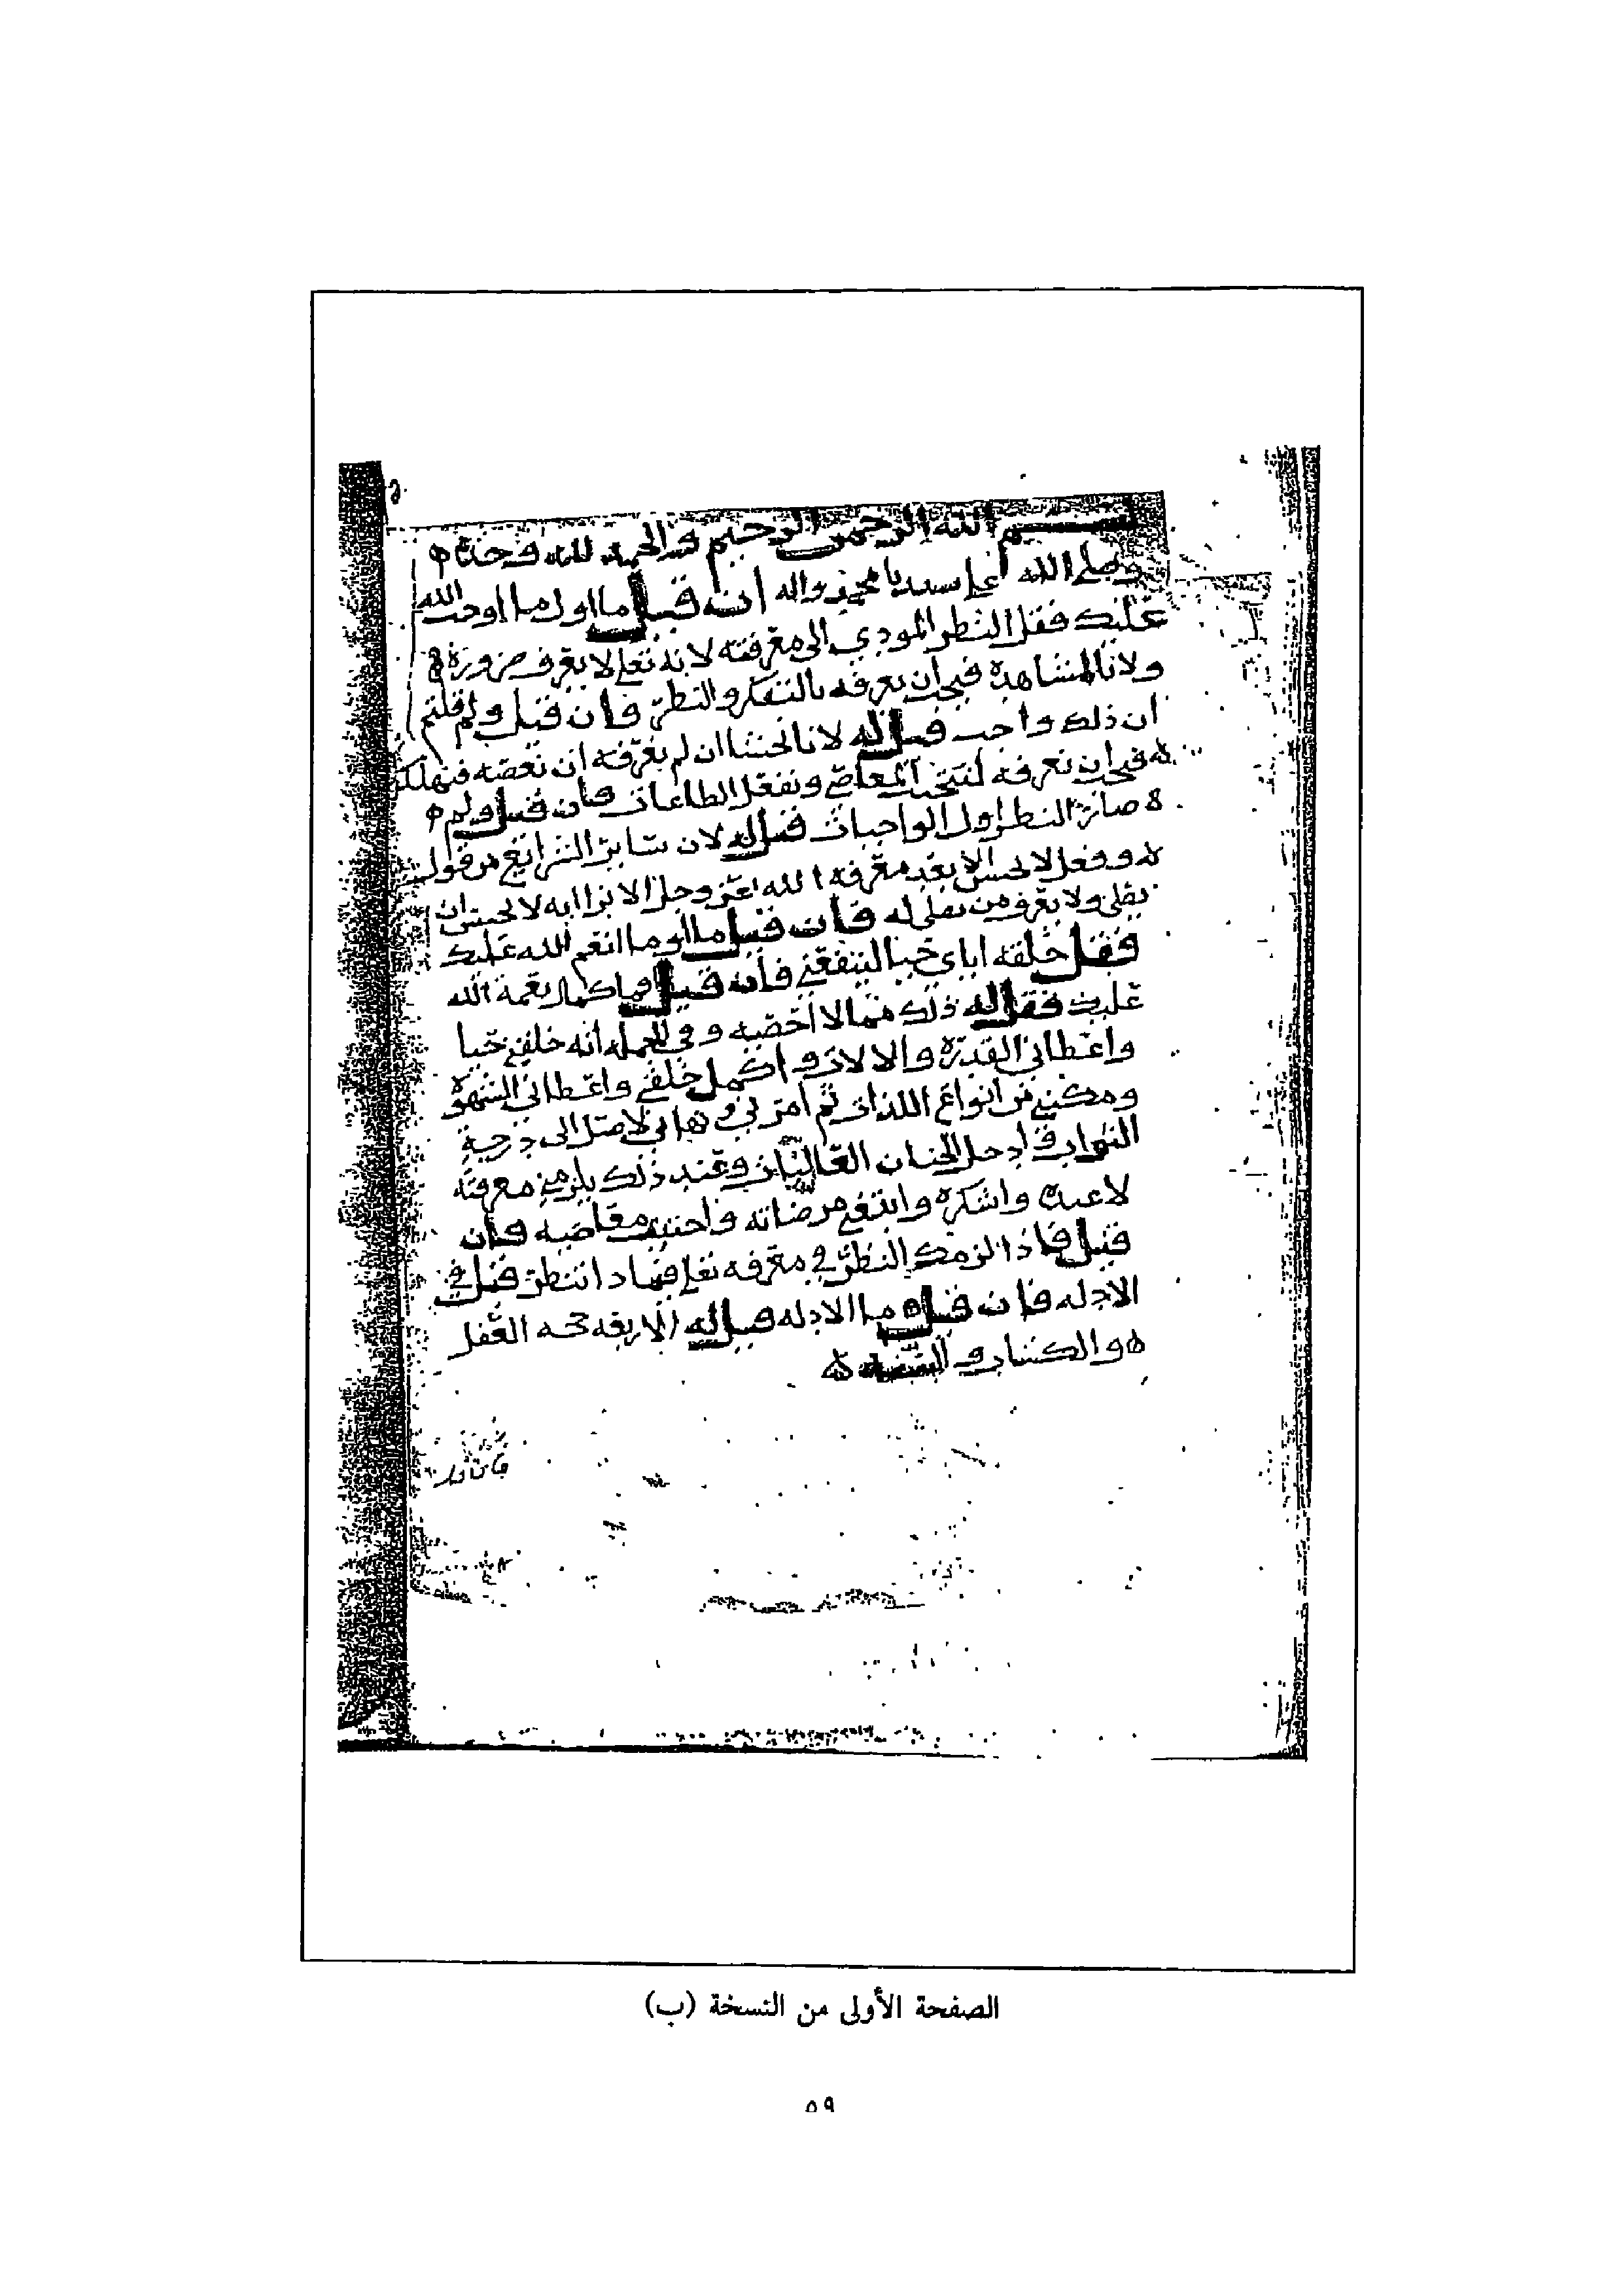 بسم الله الرحمن الرحيم والحمد لله وحده
وصلى الله على سيدنا محمد واله ان قيل ما اول ما اوجب الله
عليك فقل النظر المودي الى معرفته لانه تعلى لا يعرف ضرورة
ولا بالمشاهدة فيجب ان نعرفه بالتفكر والنظر فان قيل ولم قلتم
ان ذلك واجب قيل له لانا لخشنا ان لم نعرفه ان نعصه فنهلك
فيجب ان نعرفه لنتجنب المعاصي ونفعل الطاعات فان قيل ولم
صار النظر اول الواجبات قيل له لان سائر الشرائع من قول
وفعل لا يحسن الا بعد معرفة الله عز وجل الا ترا انه لا يحسن ان
يصلي ولا يعرف من يصلي له فان قيل ما اول ما انعم الله عليك
فقل خلقه اياي حيا لينفعني فان قيل فما كمال نعمة الله
عليك فقل له ذلك مما لا احصيه وفي الجملة انه خلقني حيا
واعطاني القدرة والالات واكمل خلقي واعطاني الشهوة
ومكنني من انواع اللذات ثم امرني ونهاني لاصل الى درجة
الثواب وادخل الجنان العاليات وعند ذلك يلزمني معرفته
لاعبده واشكره وابتغي مرضاته واجتنب معاصيه فان
قيل فاذا لزمك النظر في معرفه تعلى فبماذا تنظر قيل في
الادله فان قيل ما الادله قيل له الاربعه حجه العقل
والكتاب والسنه
الصفحة الأولى من النسخة (ب)
٥٩